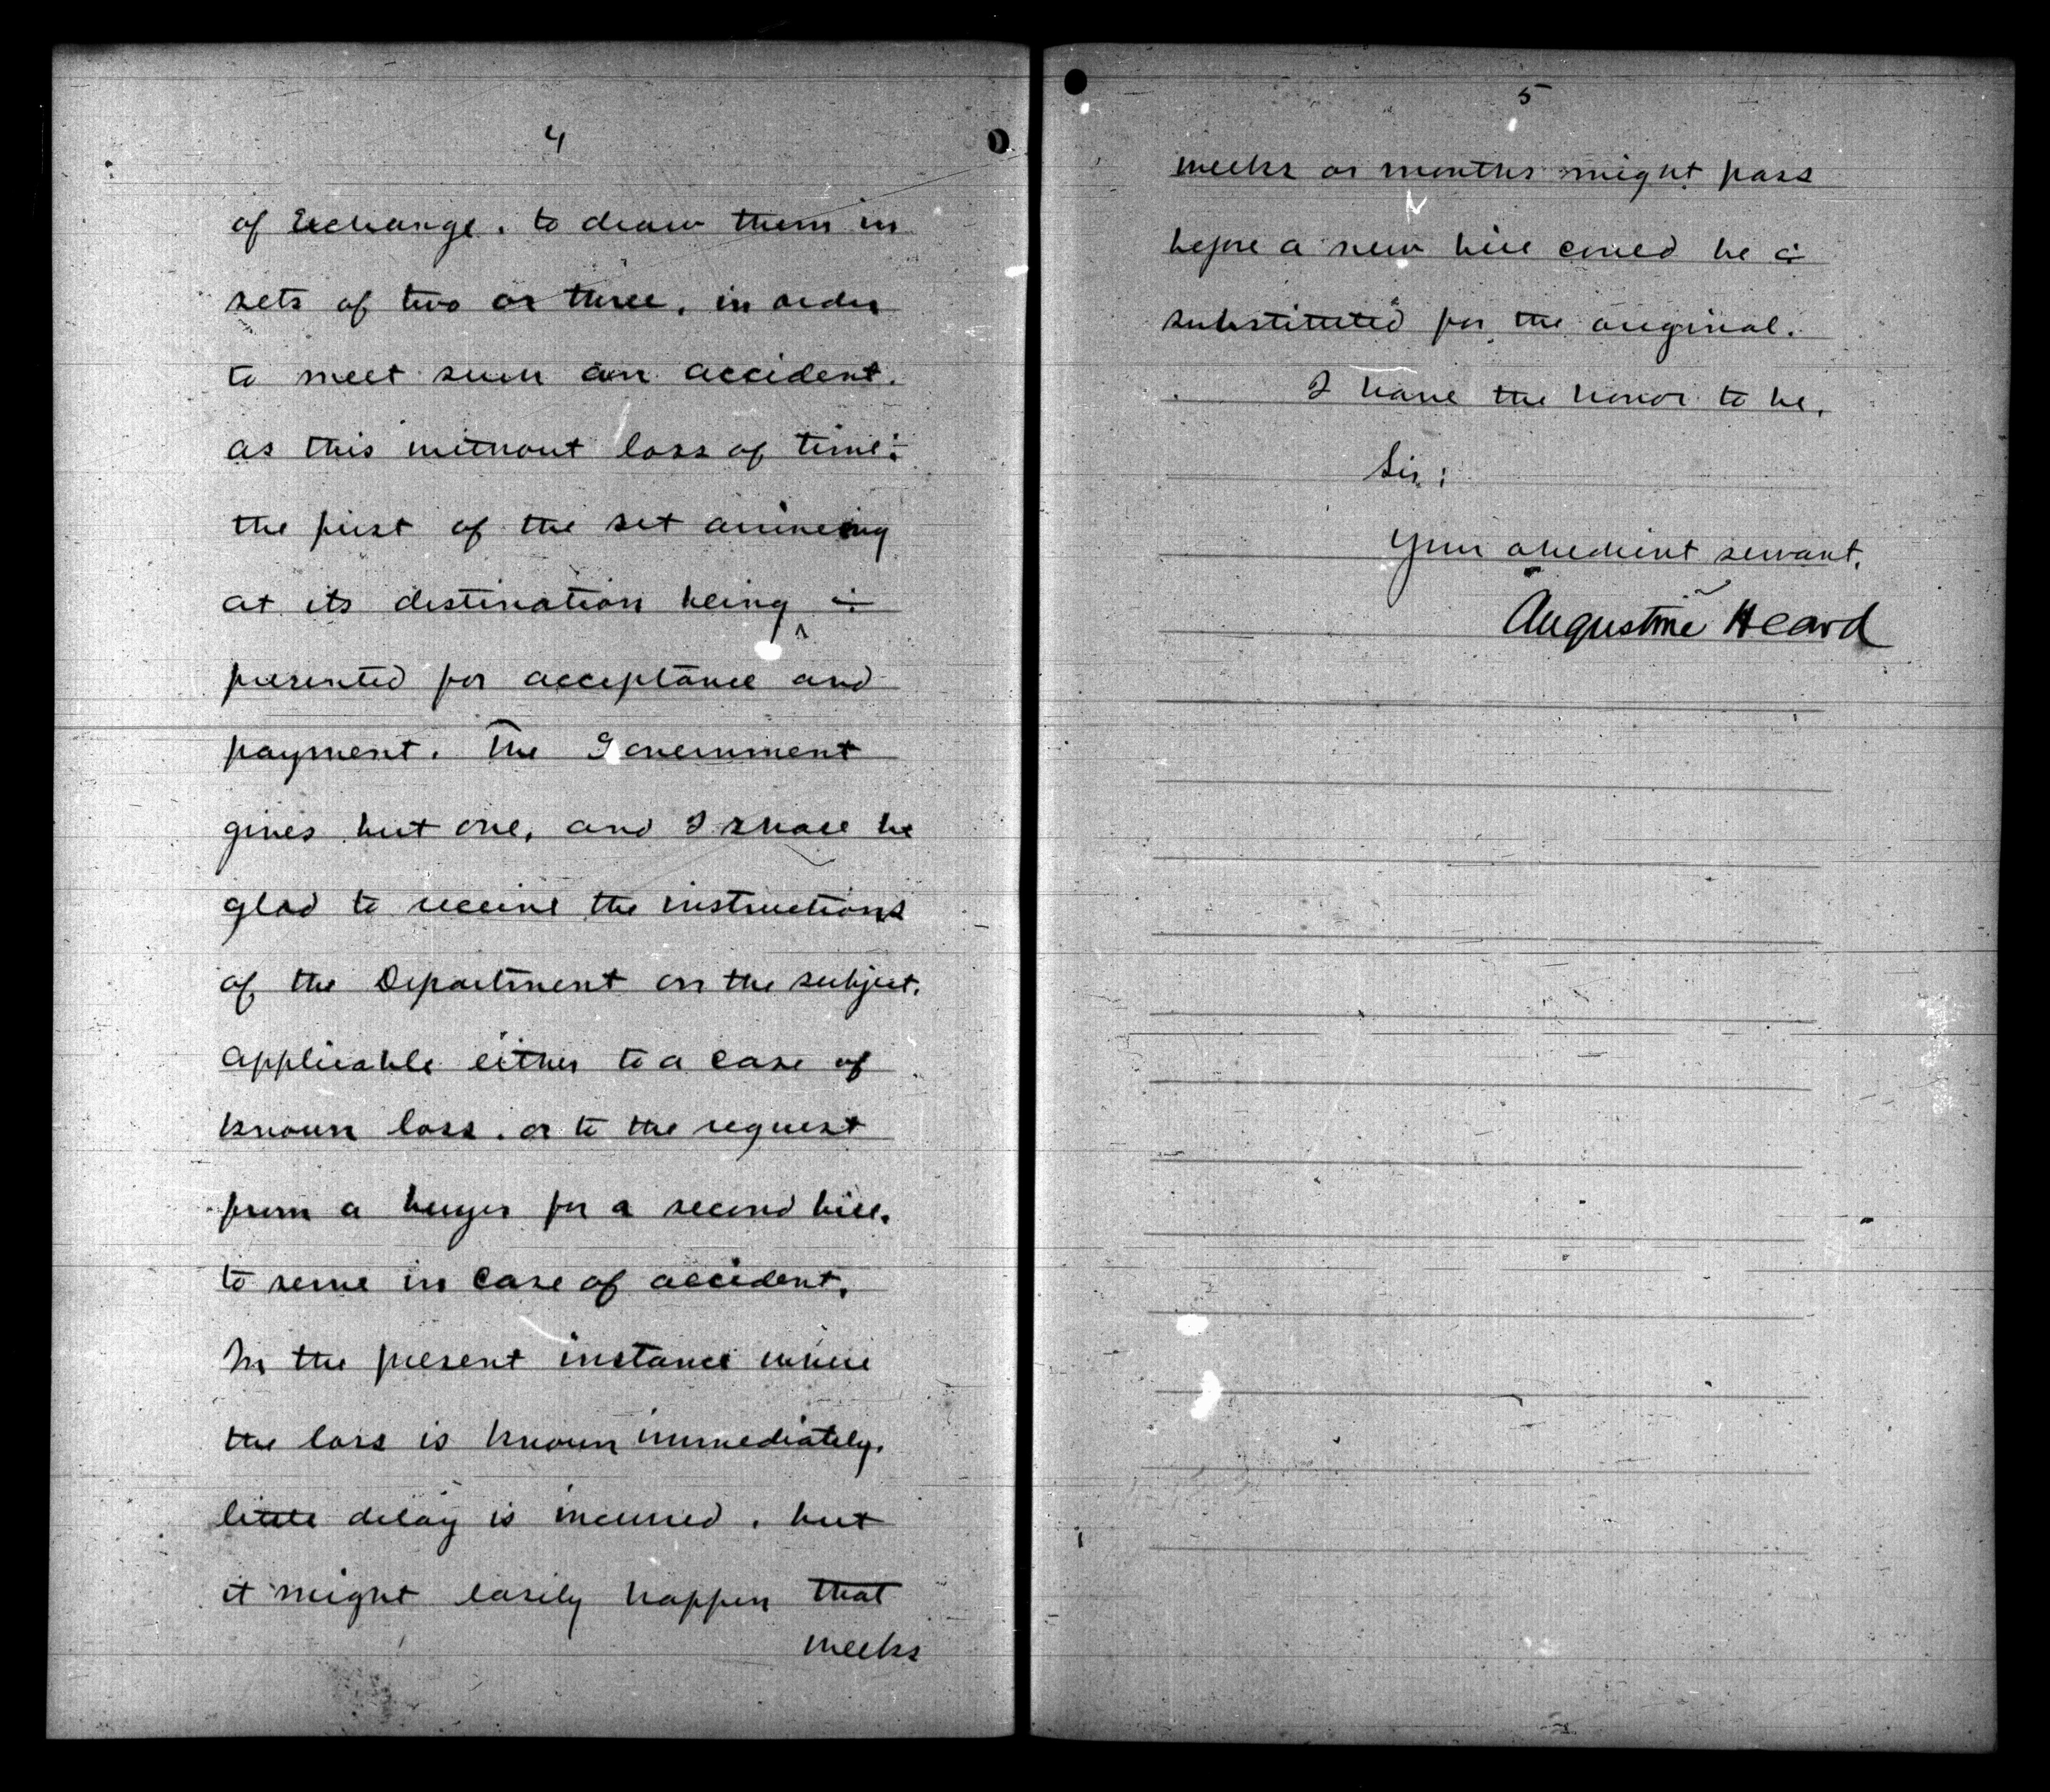 4
of Exchange, to draw them in
sets of two or three, in order
to meet such an accident
as this without loss of time:
the first of the set arriving
at its destination being
presented for acceptance and
payment. The Government
gives but one, and I shall be
glad to receive the instructions
of the Department on the subject,
applicable either to a case of
known loss, or to the request
from a buyer for a second bill,
to serve in case of accident.
In the present instance where
the loss is known immediately,
little delay is incurred, but
it might easily happen that
weeks
5
weeks or months might pass
before a new bill could be
substituted for the original.
I have the honor to be,
Sir:
Your obedient servant,
Augustine Heard